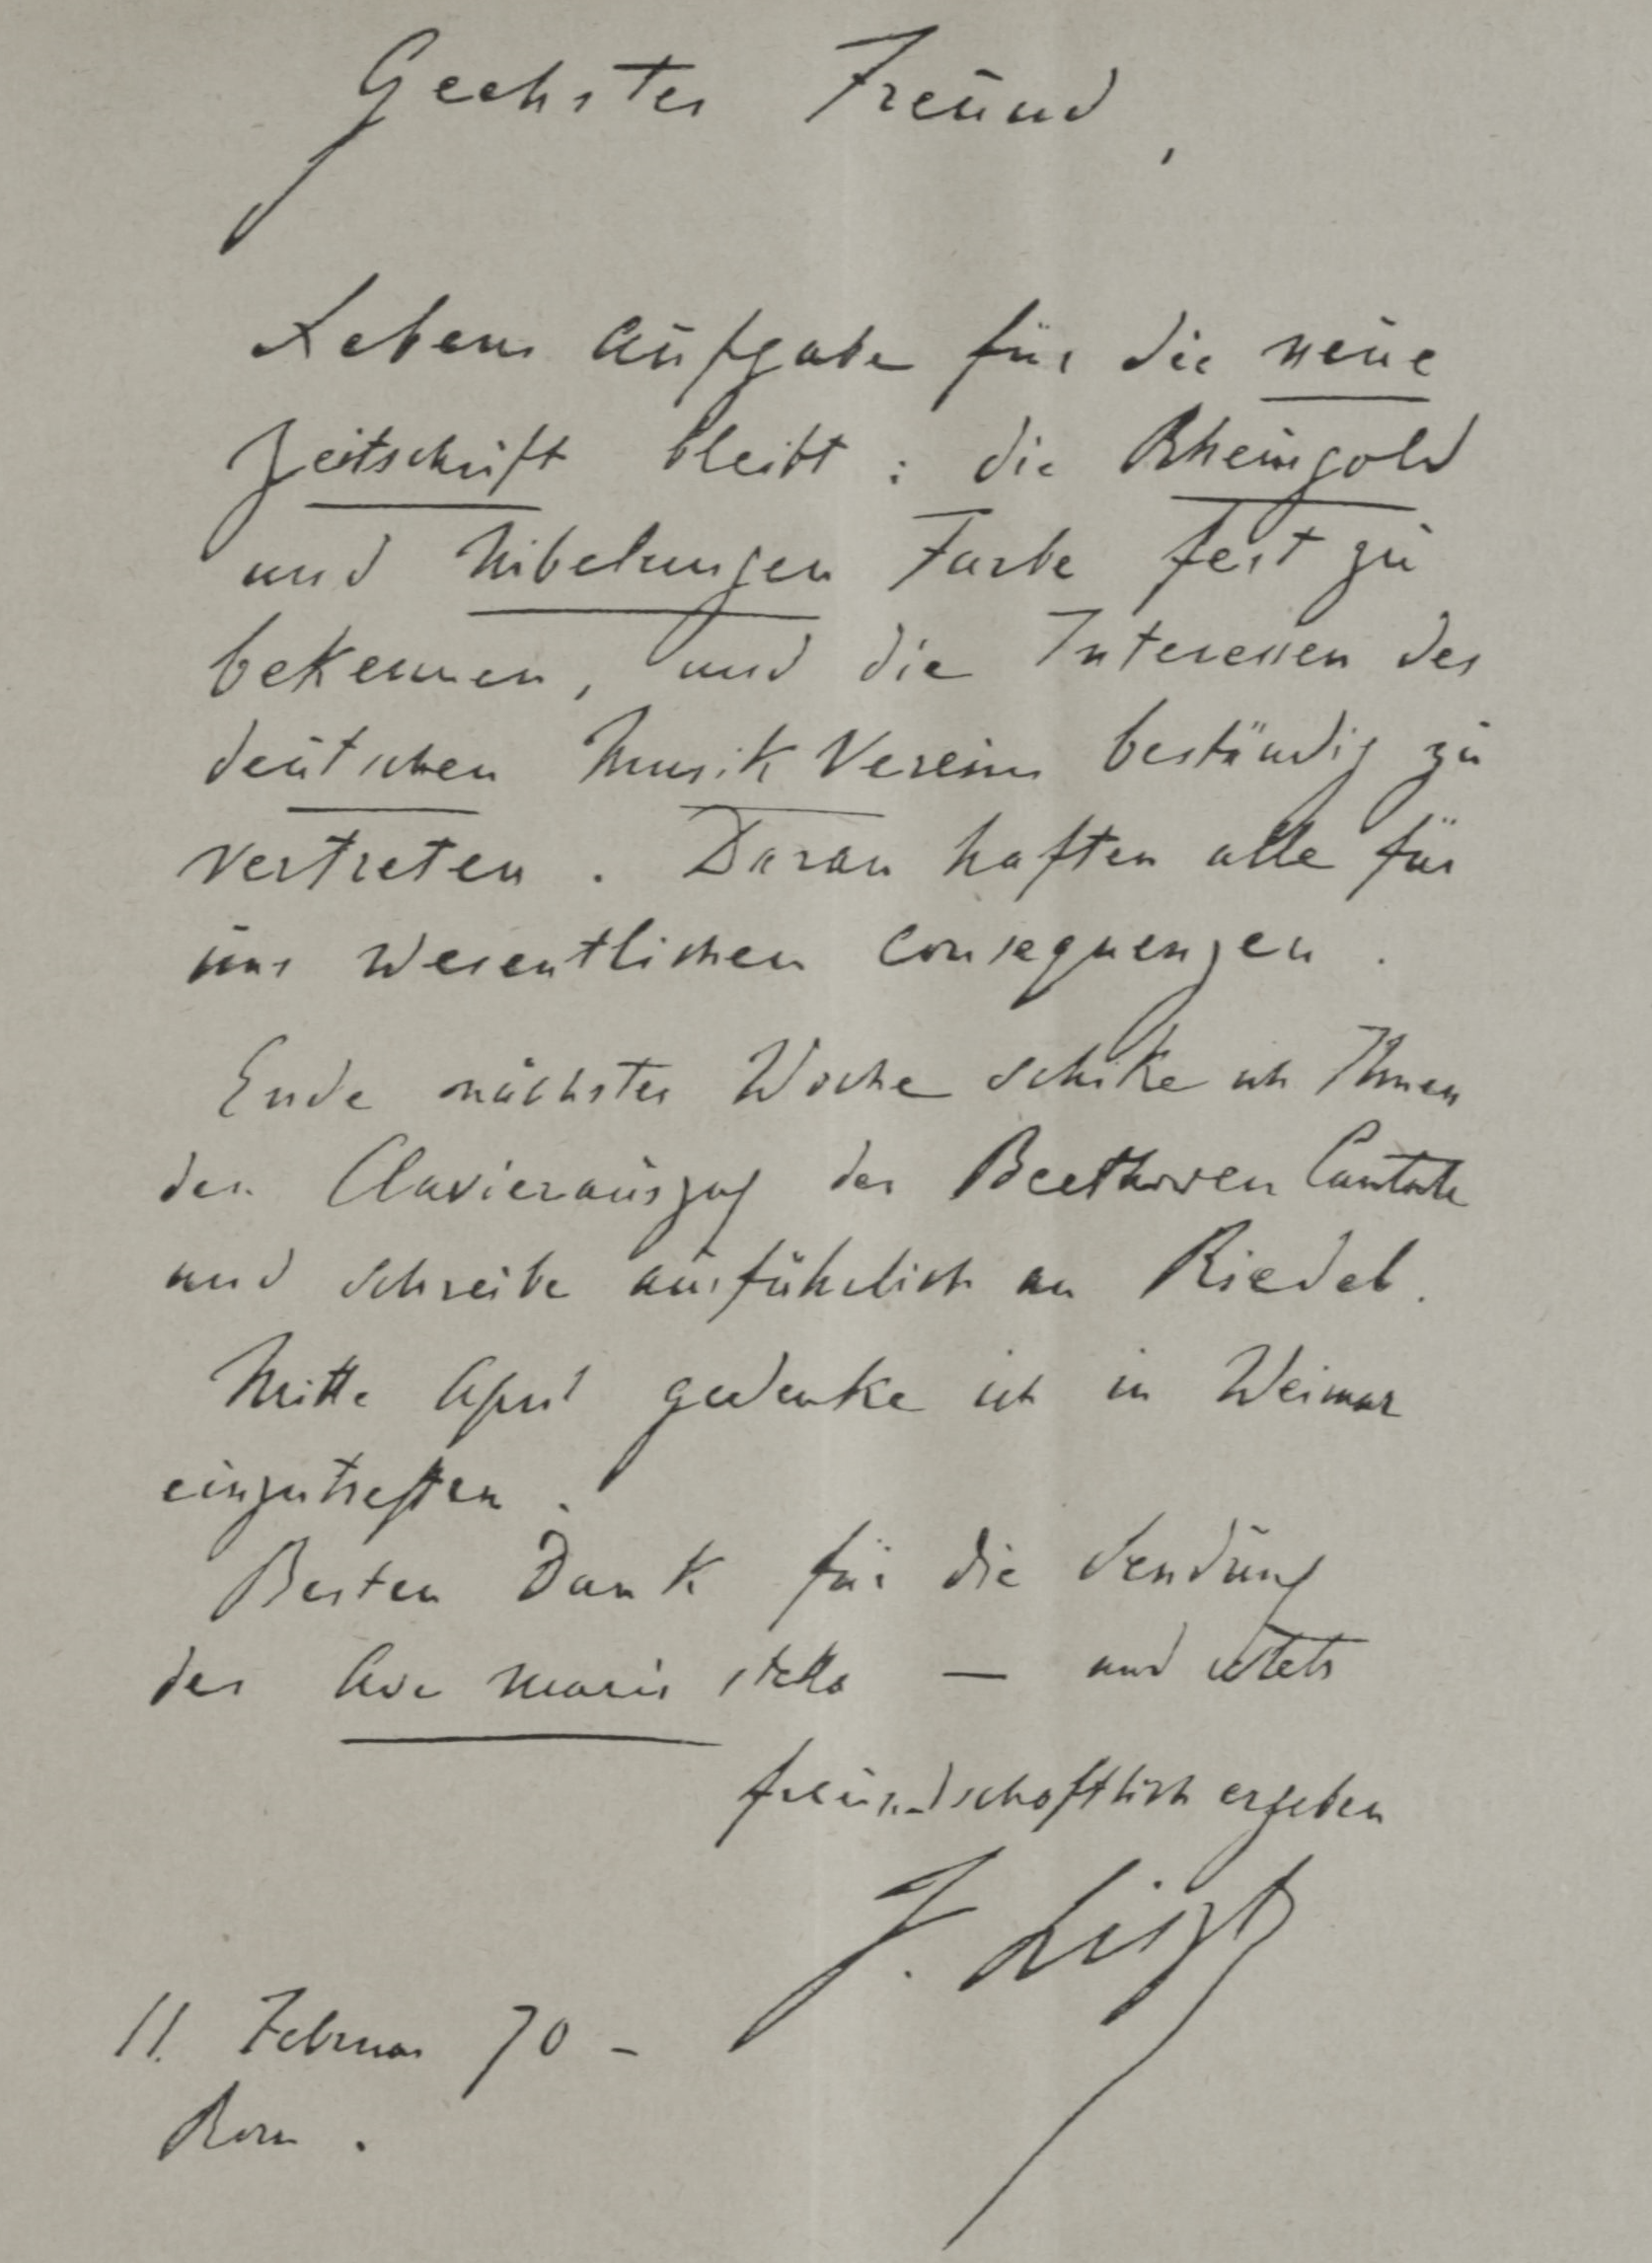 Geehrter Freund,
Lebens Aufgabe für die neue
Zeitschrift bleibt: die Rheingold
und Nibelungen Farbe fest zu
bekennen, und die Interessen des
deutschen Musik Vereins beständig zu
vertreten. Daran haften alle für
uns wesentlichen Consequenzen.
Ende nächster Woche schike ich Ihnen
den Clavierauszug der Beethoven Cantate
und schreibe ausführlich an Riedel.
Mitte April gedenke ich in Weimar
einzutreffen.
Besten Dank für die Sendung
des Ave maris stella — und stets
freundschaftlich ergeben
F. Liszt
11. Februar 70 –
Rom.